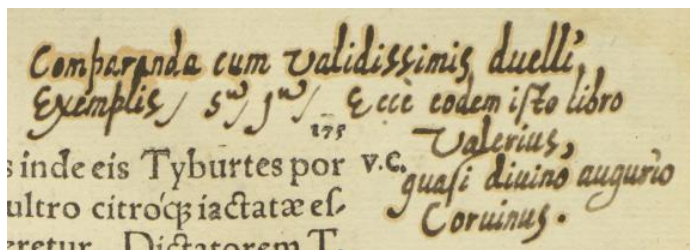 Comparanda cum validissimis duelli,
Exemplis, Ecce eodem isto libro
Valerius,
quasi diuino augurio
Coruinus.
175
V.C.
s inde eis Tyburtes por
ultro citróq; iactatæ es-
eretur. Dictatorem T.